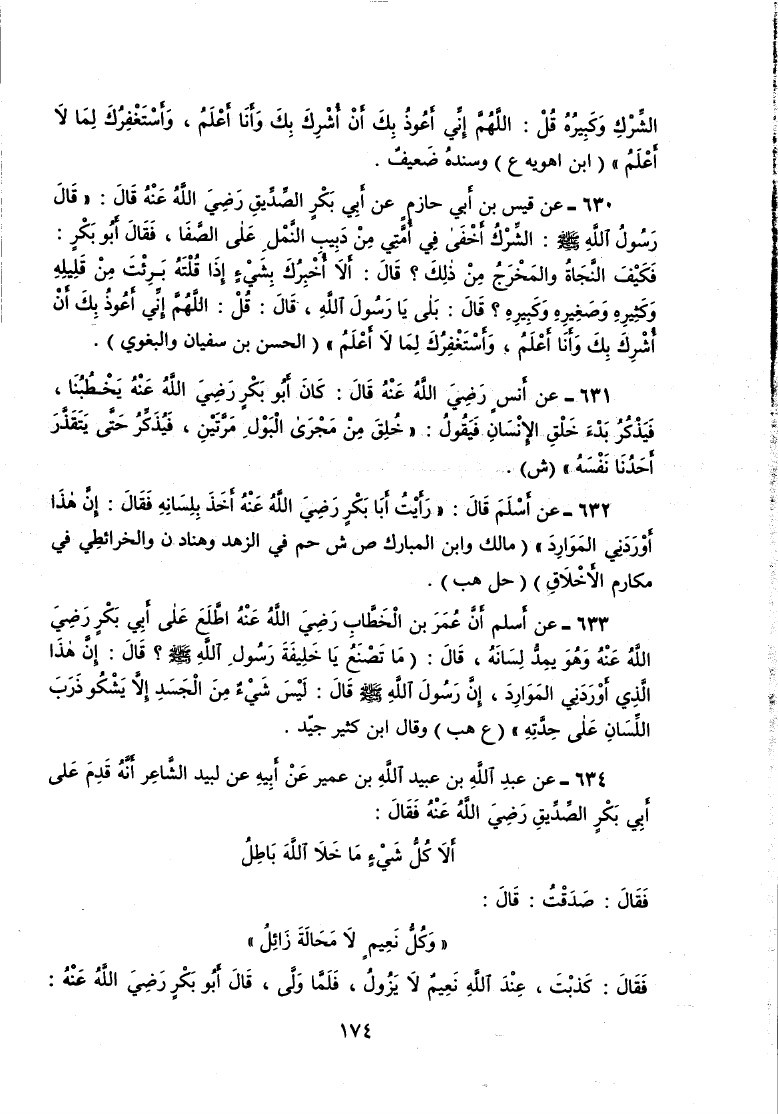 الشِّرْكِ وَكَبِيرُهُ قُلْ : اللَّهُمَّ إِنِّي أَعُوذُ بِكَ أَنْ أُشْرِكَ بِكَ وَأَنَا أَعْلَمُ ، وَأَسْتَغْفِرُكَ لِمَا لَا
أَعْلَمُ » ( ابن اهويه ع ) وسندهُ ضَعيفٌ .
٦٣٠ - عن قيس بن أبي حازمٍ عن أَبِي بَكْرٍ الصِّدِّيقِ رَضِيَ اللَّهُ عَنْهُ قَالَ : « قَالَ
رَسُولُ اللَّهِ ﷺ : الشِّرْكُ أَخْفَىٰ فِي أُمَّتِي مِنْ دَبِيبِ النَّمْلِ عَلَى الصَّفَا ، فَقَالَ أَبُو بَكْرٍ :
فَكَيْفَ النَّجَاةُ والمَخْرَجُ مِنْ ذٰلِكَ ؟ قَالَ : أَلَا أُخْبِرُكَ بِشَيْءٍ إِذَا قُلْتَهُ بَرِئْتَ مِنْ قَلِيلِهِ
وَكَثِيرِهِ وَصَغِيرِهِ وَكَبِيرِهِ ؟ قَالَ : بَلَى يَا رَسُولَ اللَّهِ ، قَالَ : قُلْ : اللَّهُمَّ إِنِّي أَعُوذُ بِكَ أَنْ
أُشْرِكَ بِكَ وَأَنَا أَعْلَمُ ، وَأَسْتَغْفِرُكَ لِمَا لَا أَعْلَمُ » ( الحسن بن سفيان والبغوي ) .
٦٣١ - عن أنسٍ رَضِيَ اللَّهُ عَنْهُ قَالَ : كَانَ أَبُو بَكْرٍ رَضِيَ اللَّهُ عَنْهُ يَخْطُبُنَا ،
فَيَذْكُرُ بَدْءَ خَلْقِ الإِنْسَانِ فَيَقُولُ : « خُلِقَ مِنْ مَجْرَىٰ الْبَوْلِ مَرَّتَيْنِ ، فَيُذَكِّرُ حَتَّى يَتَقَذَّرَ
أَحَدُنَا نَفْسَهُ » (ش) .
٦٣٢ - عن أَسْلَمَ قَالَ : « رَأَيْتُ أَبَا بَكْرٍ رَضِيَ اللَّهُ عَنْهُ أَخَذَ بِلِسَانِهِ فَقَالَ : إِنَّ هٰذَا
أَوْرَدَنِي المَوَارِدَ » ( مالك وابن المبارك ص ش حم في الزهد وهناد ن والخرائطي في
مكارم الأَخْلَاقِ ) ( حل هب ) .
٦٣٣ - عن أسلم أَنَّ عُمَرَ بن الْخَطَّابِ رَضِيَ اللَّهُ عَنْهُ اطَّلَعَ عَلَى أَبِي بَكْرٍ رَضِيَ
اللَّهُ عَنْهُ وَهُوَ يمِدُّ لِسَانَهُ ، قَالَ : ( مَا تَصْنَعُ يَا خَلِيفَةَ رَسُولِ اللَّهِ ﷺ ؟ قَالَ : إِنَّ هٰذَا
الَّذِي أَوْرَدَنِي المَوَارِدَ ، إِنَّ رَسُولَ اللَّهِ ﷺ قَالَ : لَيْسَ شَيْءٌ مِنَ الْجَسَدِ إِلَّا يَشْكُو ذَرَبَ
اللِّسَانِ عَلَى حِدَّتِهِ » ( ع هب ) وقال ابن كثير جيّد .
٦٣٤ - عن عبدِ اللَّهِ بن عبيد اللَّهِ بن عمير عَنْ أَبِيهِ عن لبيد الشاعِر أَنَّهُ قَدِمَ عَلى
أَبِي بَكْرٍ الصِّدِّيقِ رَضِيَ اللَّهُ عَنْهُ فَقَالَ :
أَلَا كُلُّ شَيْءٍ مَا خَلَا اللَّهَ بَاطِلُ
فَقَالَ : صَدَقْتُ : قَالَ :
« وَكُلُّ نَعِيمٍ لَا مَحَالَةَ زَائِلُ »
فَقَالَ : كَذبْتَ ، عِنْدَ اللَّهِ نَعِيمٌ لَا يَزُولُ ، فَلَمَّا وَلَّى ، قَالَ أَبُو بَكْرٍ رَضِيَ اللَّهُ عَنْهُ :
١٧٤